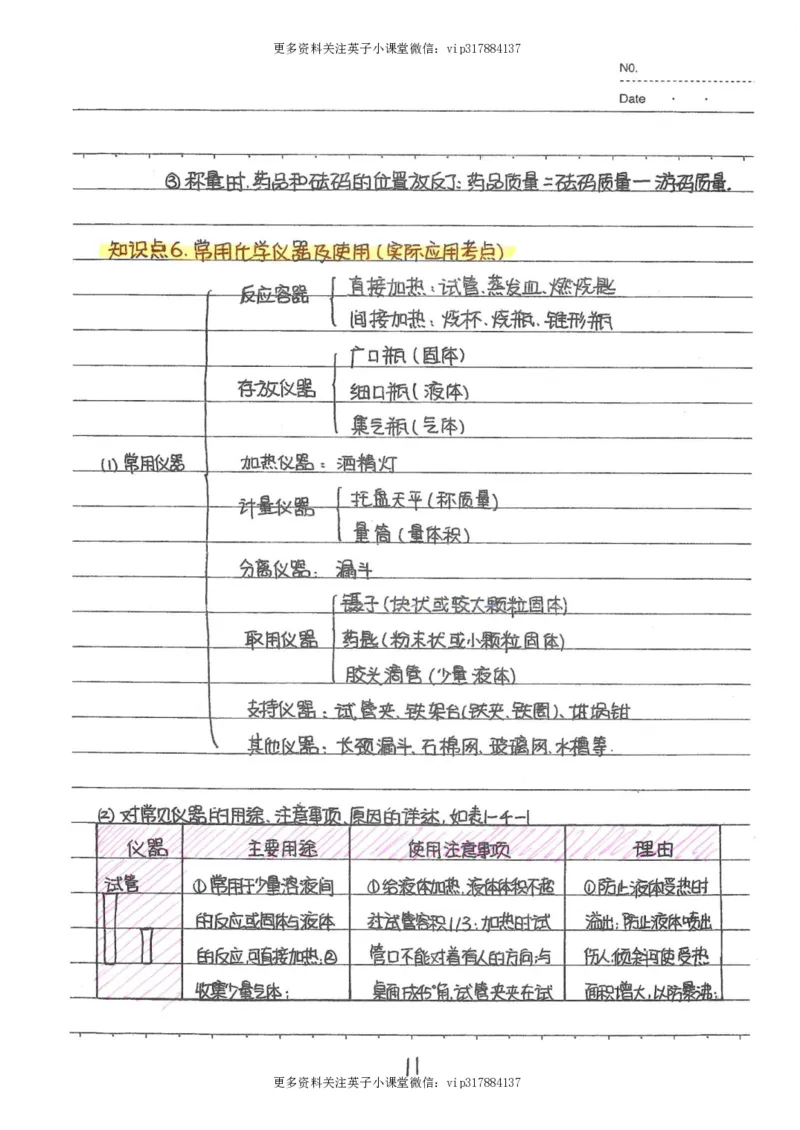 更多资料关注英子小课堂微信：vip317884137
NO.
Date
③称量时,药品和砝码的位置放反了:药品质量=砝码质量—游码质量.
知识点6.常用化学仪器及使用(实际应用考点)
反应容器
直接加热:试管、蒸发皿、燃烧匙
间接加热:烧杯、烧瓶、锥形瓶
存放仪器
广口瓶(固体)
细口瓶(液体)
集气瓶(气体)
(1)常用仪器
加热仪器:酒精灯
计量仪器
托盘天平(称质量)
量筒(量体积)
分离仪器:漏斗
取用仪器
镊子(块状或较大颗粒固体)
药匙(粉末状或小颗粒固体)
胶头滴管(少量液体)
支持仪器:试管夹、铁架台(铁夹、铁圈)、坩埚钳
其他仪器:长颈漏斗、石棉网、玻璃网、水槽等.
(2)对常见仪器的用途、注意事项、原因的详述,如表1-4-1
仪器 主要用途 使用注意事项 理由
试管 ①常用于少量溶液间 ①给液体加热,液体体积不超 ①防止液体受热时
的反应或固体与液体 过试管容积1/3;加热时试 溢出;防止液体喷出
的反应,可直接加热;② 管口不能对着有人的方向;与 伤人倾斜可使受热
收集少量气体; 桌面成45°角,试管夹夹在试 面积增大,以防暴沸;
11
更多资料关注英子小课堂微信：vip317884137